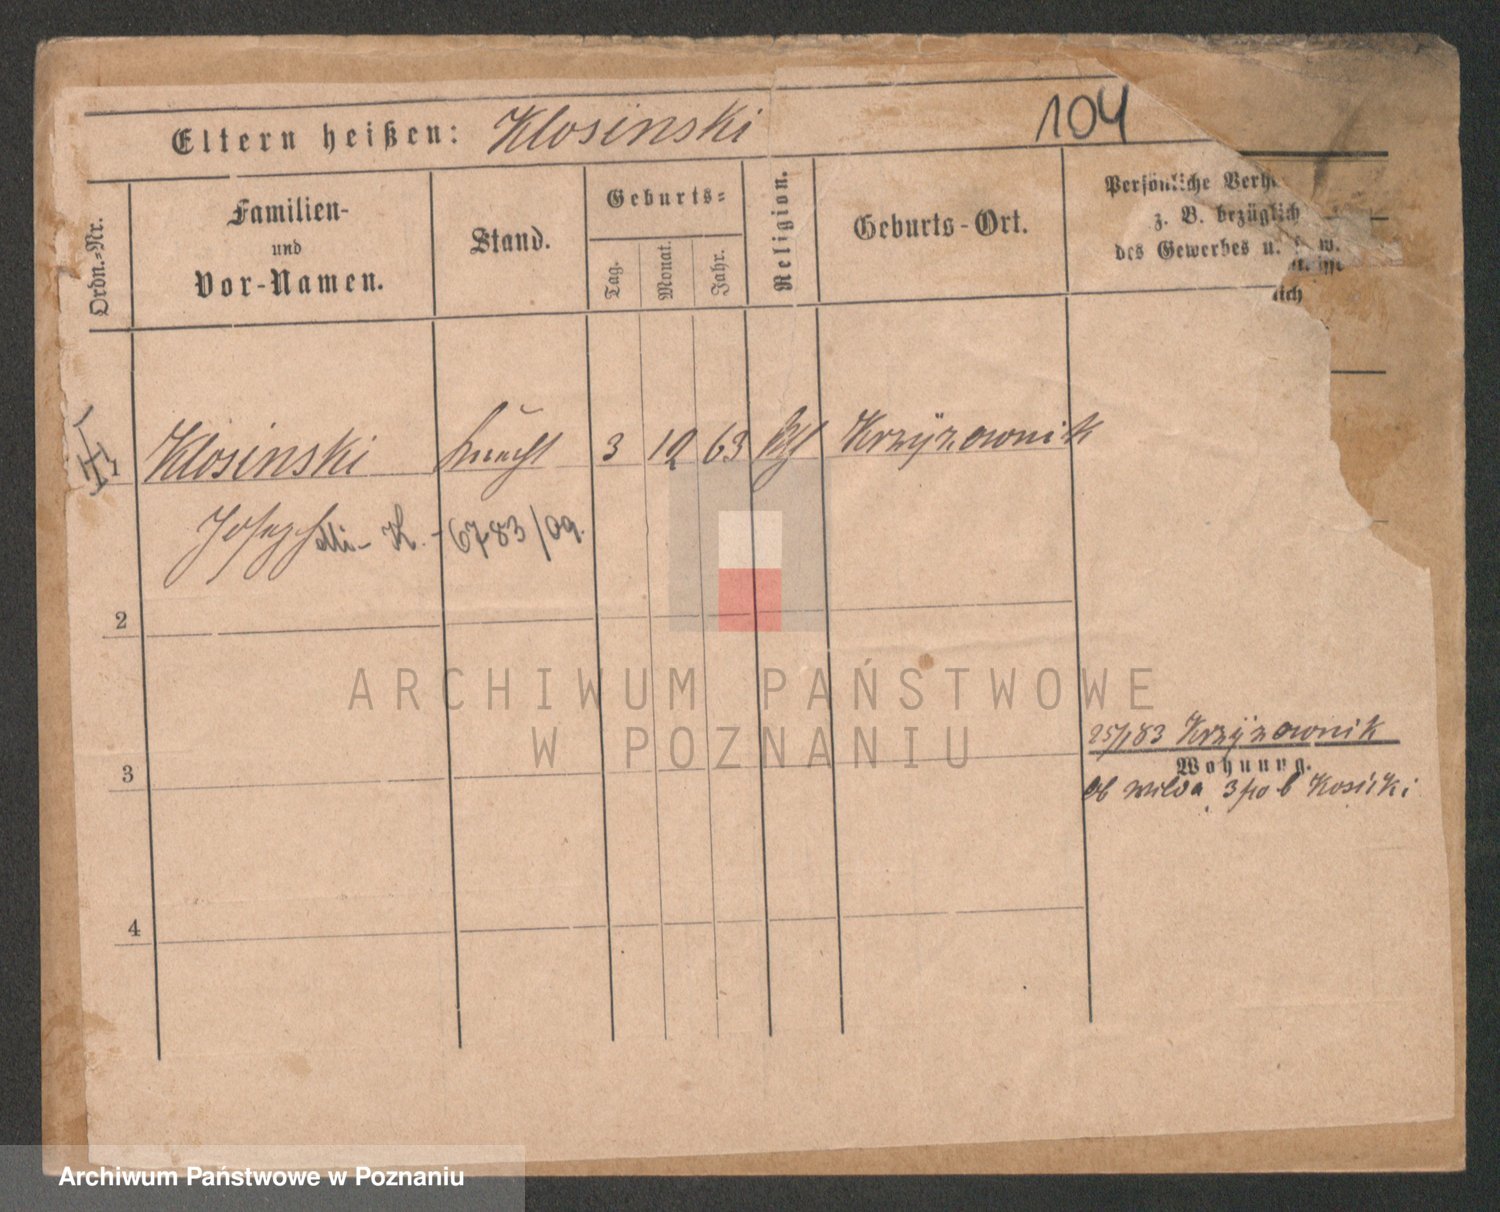 Eltern heißen: Klosinski
104
Ordn.-Nr.
Familien-
und
Vor-Namen.
Stand.
Geburts-
Tag.
Monat.
Jahr.
Religion.
Geburts-Ort.
Persönliche Verh
z. B. bezüglich
des Gewerbes u. s. w.
lich
1 Klosinski Knecht 3 10 63 Kth Krzÿzownik
Josef Mi- K. - 6783/09.
2
3
25/1 83 Krzÿzownik
Wohnung.
Ob Wilda 3 po b Kosicki
4
ARCHIWUM PAŃSTWOWE
W POZNANIU
Archiwum Państwowe w Poznaniu